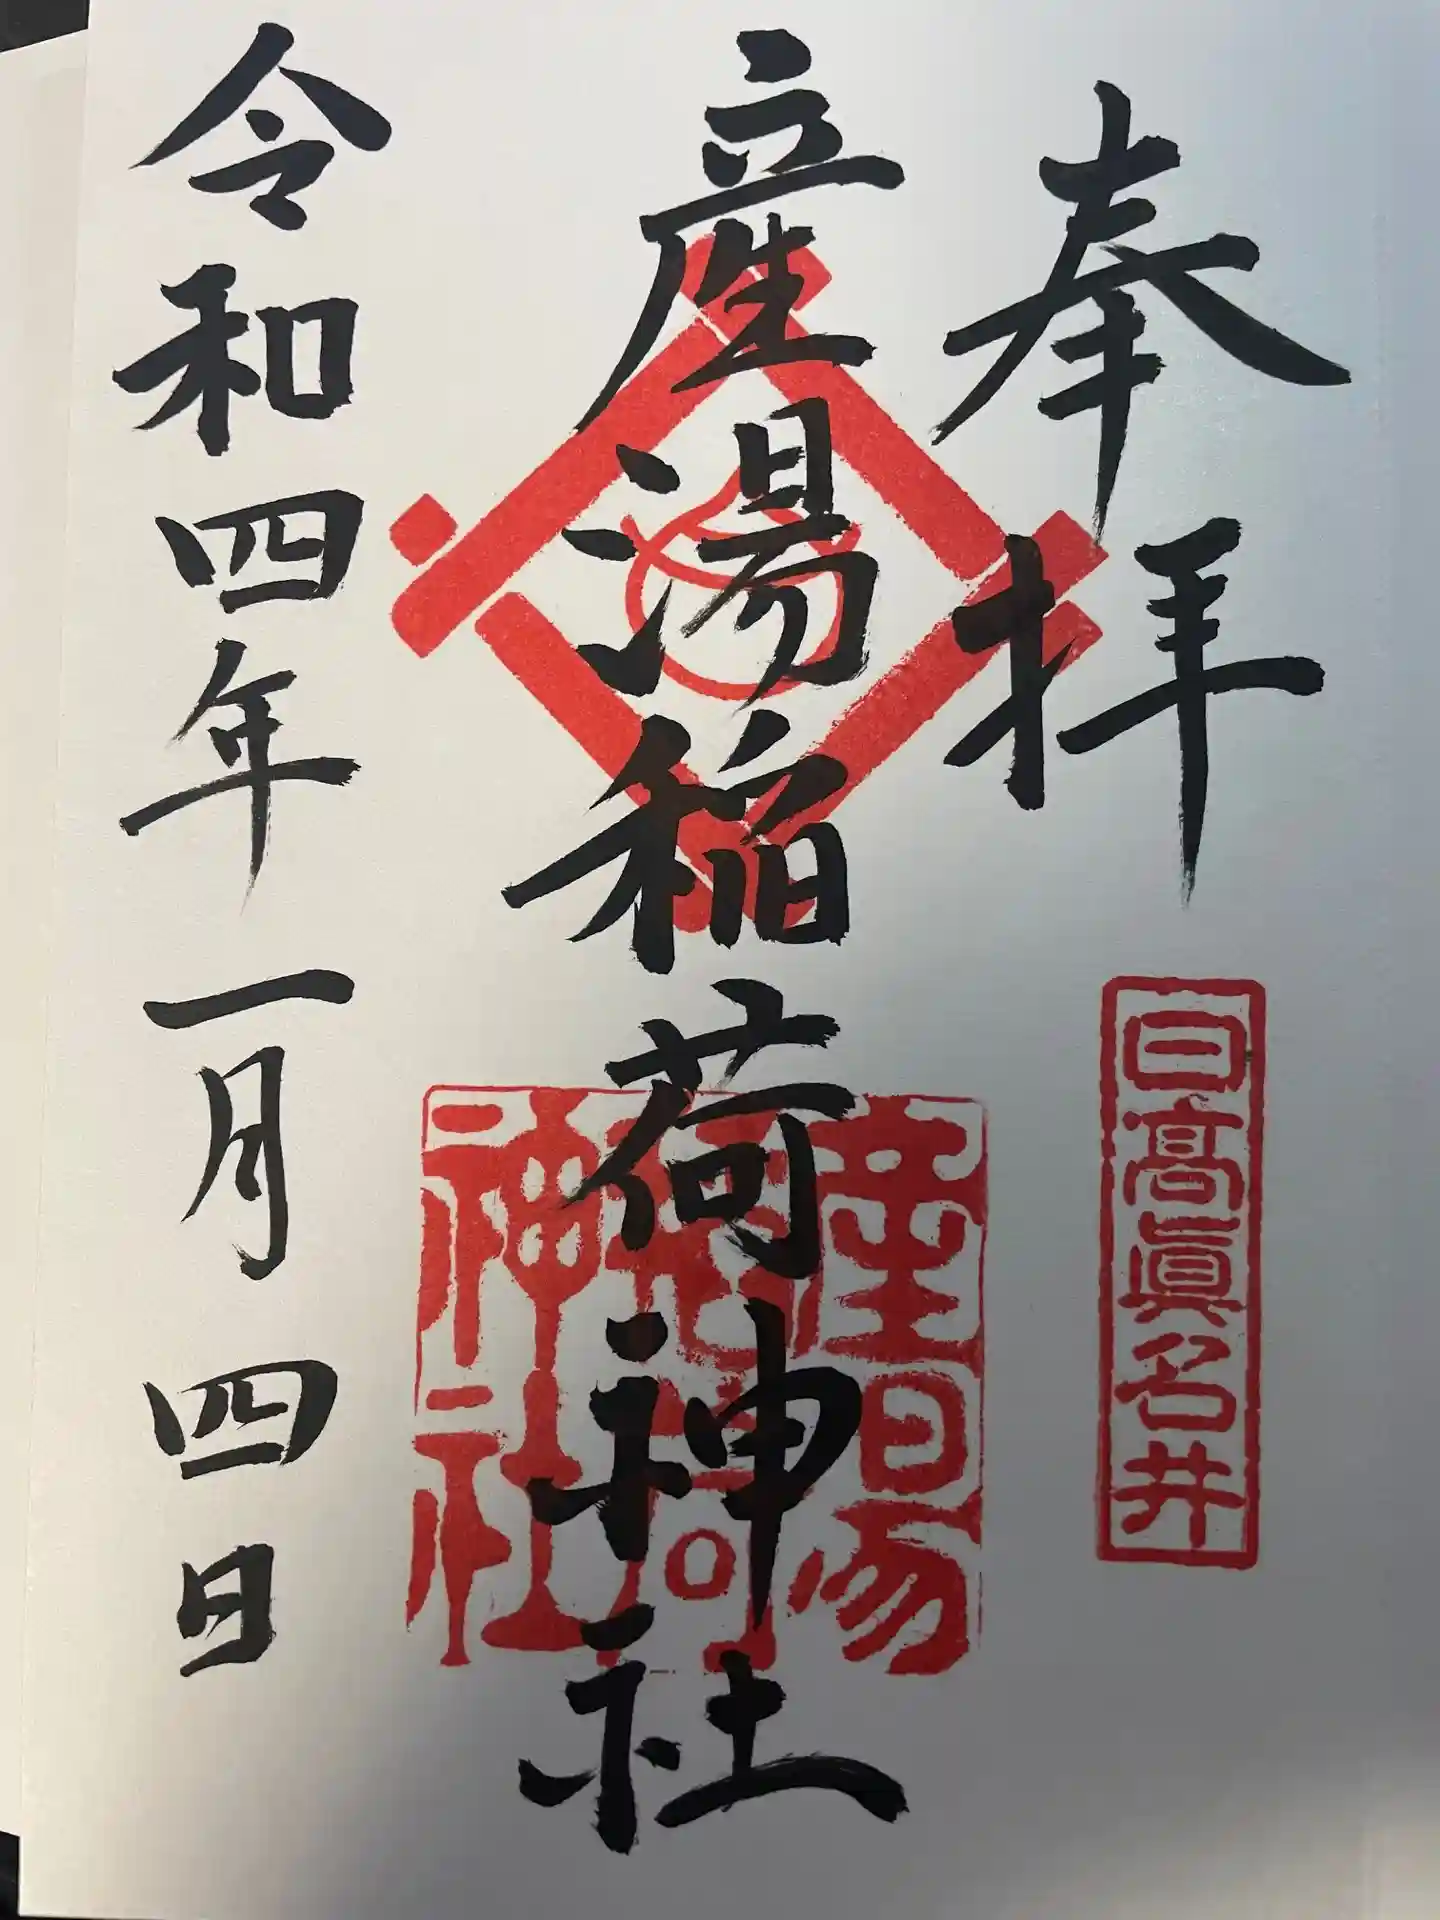 奉拝
日高眞名井
産湯稲荷神社
産湯稲荷神社
令和四年一月四日